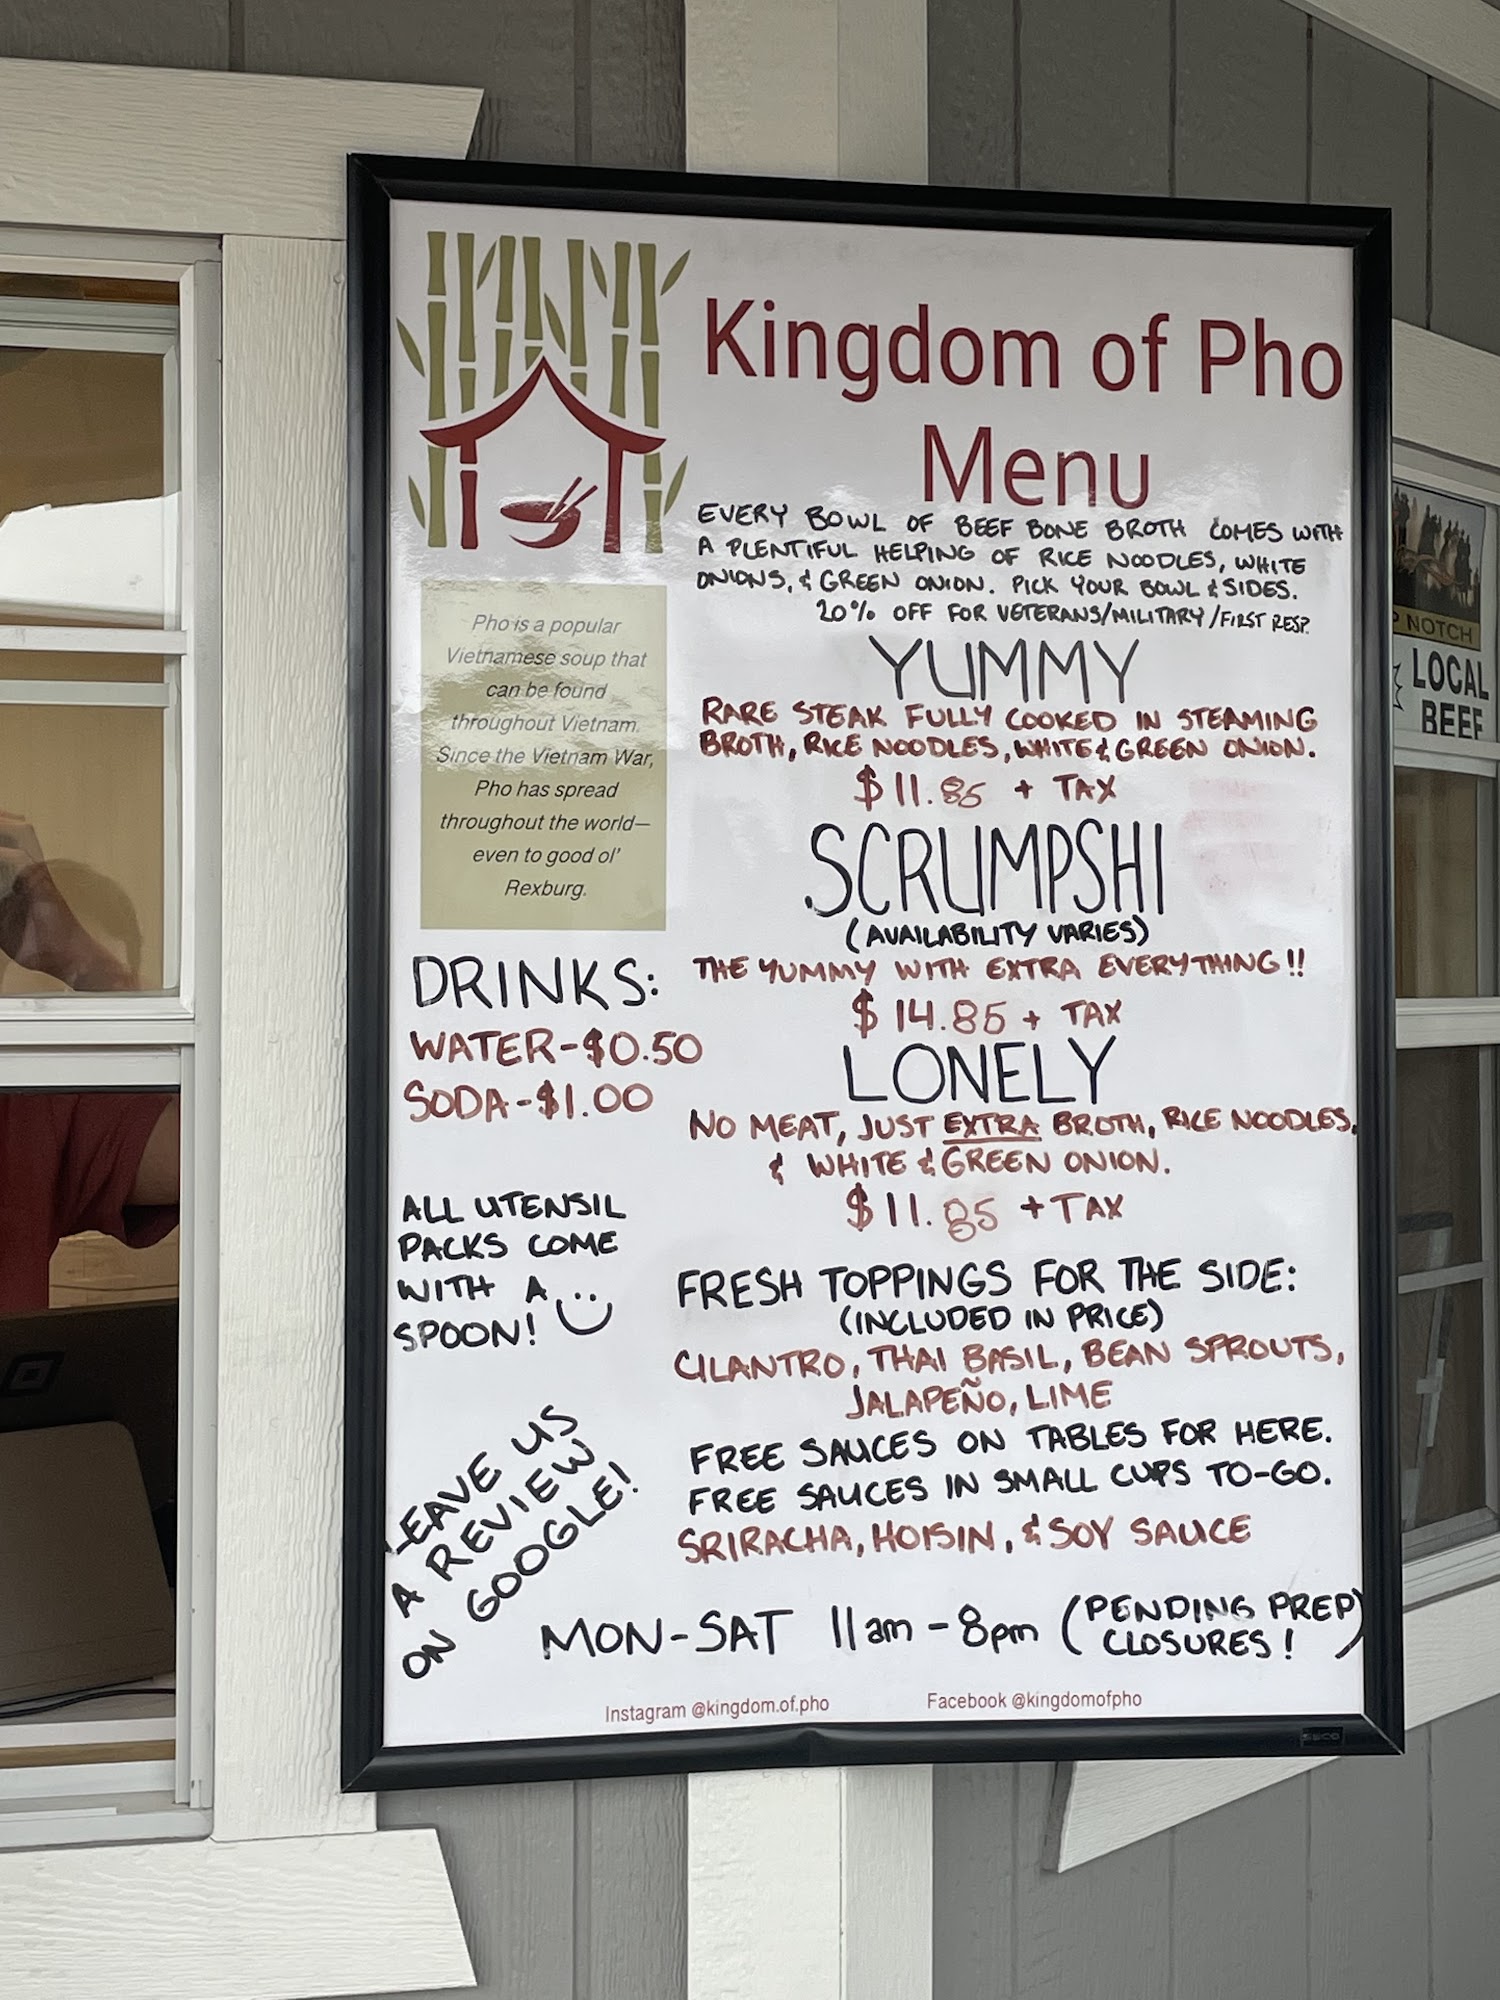 Kingdom of Pho
Menu
EVERY BOWL OF BEEF BONE BROTH COMES WITH
A PLENTIFUL HELPING OF RICE NOODLES, WHITE
ONIONS, & GREEN ONION. PICK YOUR BOWL & SIDES.
20% OFF FOR VETERANS/MILITARY/FIRST RESP.
Pho is a popular
Vietnamese soup that
can be found
throughout Vietnam.
Since the Vietnam War,
Pho has spread
throughout the world—
even to good ol'
Rexburg.
YUMMY
RARE STEAK FULLY COOKED IN STEAMING
BROTH, RICE NOODLES, WHITE & GREEN ONION.
$11.85 + TAX
SCRUMPSHI
(AVAILABILITY VARIES)
THE YUMMY WITH EXTRA EVERYTHING!!
$14.85 + TAX
LONELY
NO MEAT, JUST EXTRA BROTH, RICE NOODLES,
& WHITE & GREEN ONION.
$11. + TAX
DRINKS:
WATER-$0.50
SODA-$1.00
ALL UTENSIL
PACKS COME
WITH A
SPOON!
FRESH TOPPINGS FOR THE SIDE:
(INCLUDED IN PRICE)
CILANTRO, THAI BASIL, BEAN SPROUTS,
JALAPEÑO, LIME
FREE SAUCES ON TABLES FOR HERE.
FREE SAUCES IN SMALL CUPS TO-GO.
SRIRACHA, HOISIN, & SOY SAUCE
LEAVE US
A REVIEW
ON GOOGLE!
MON-SAT 11am-8pm (PENDING PREP
CLOSURES!)
Instagram @kingdom.of.pho
Facebook @kingdomofpho
SECO
NOTCH
LOCAL
BEEF